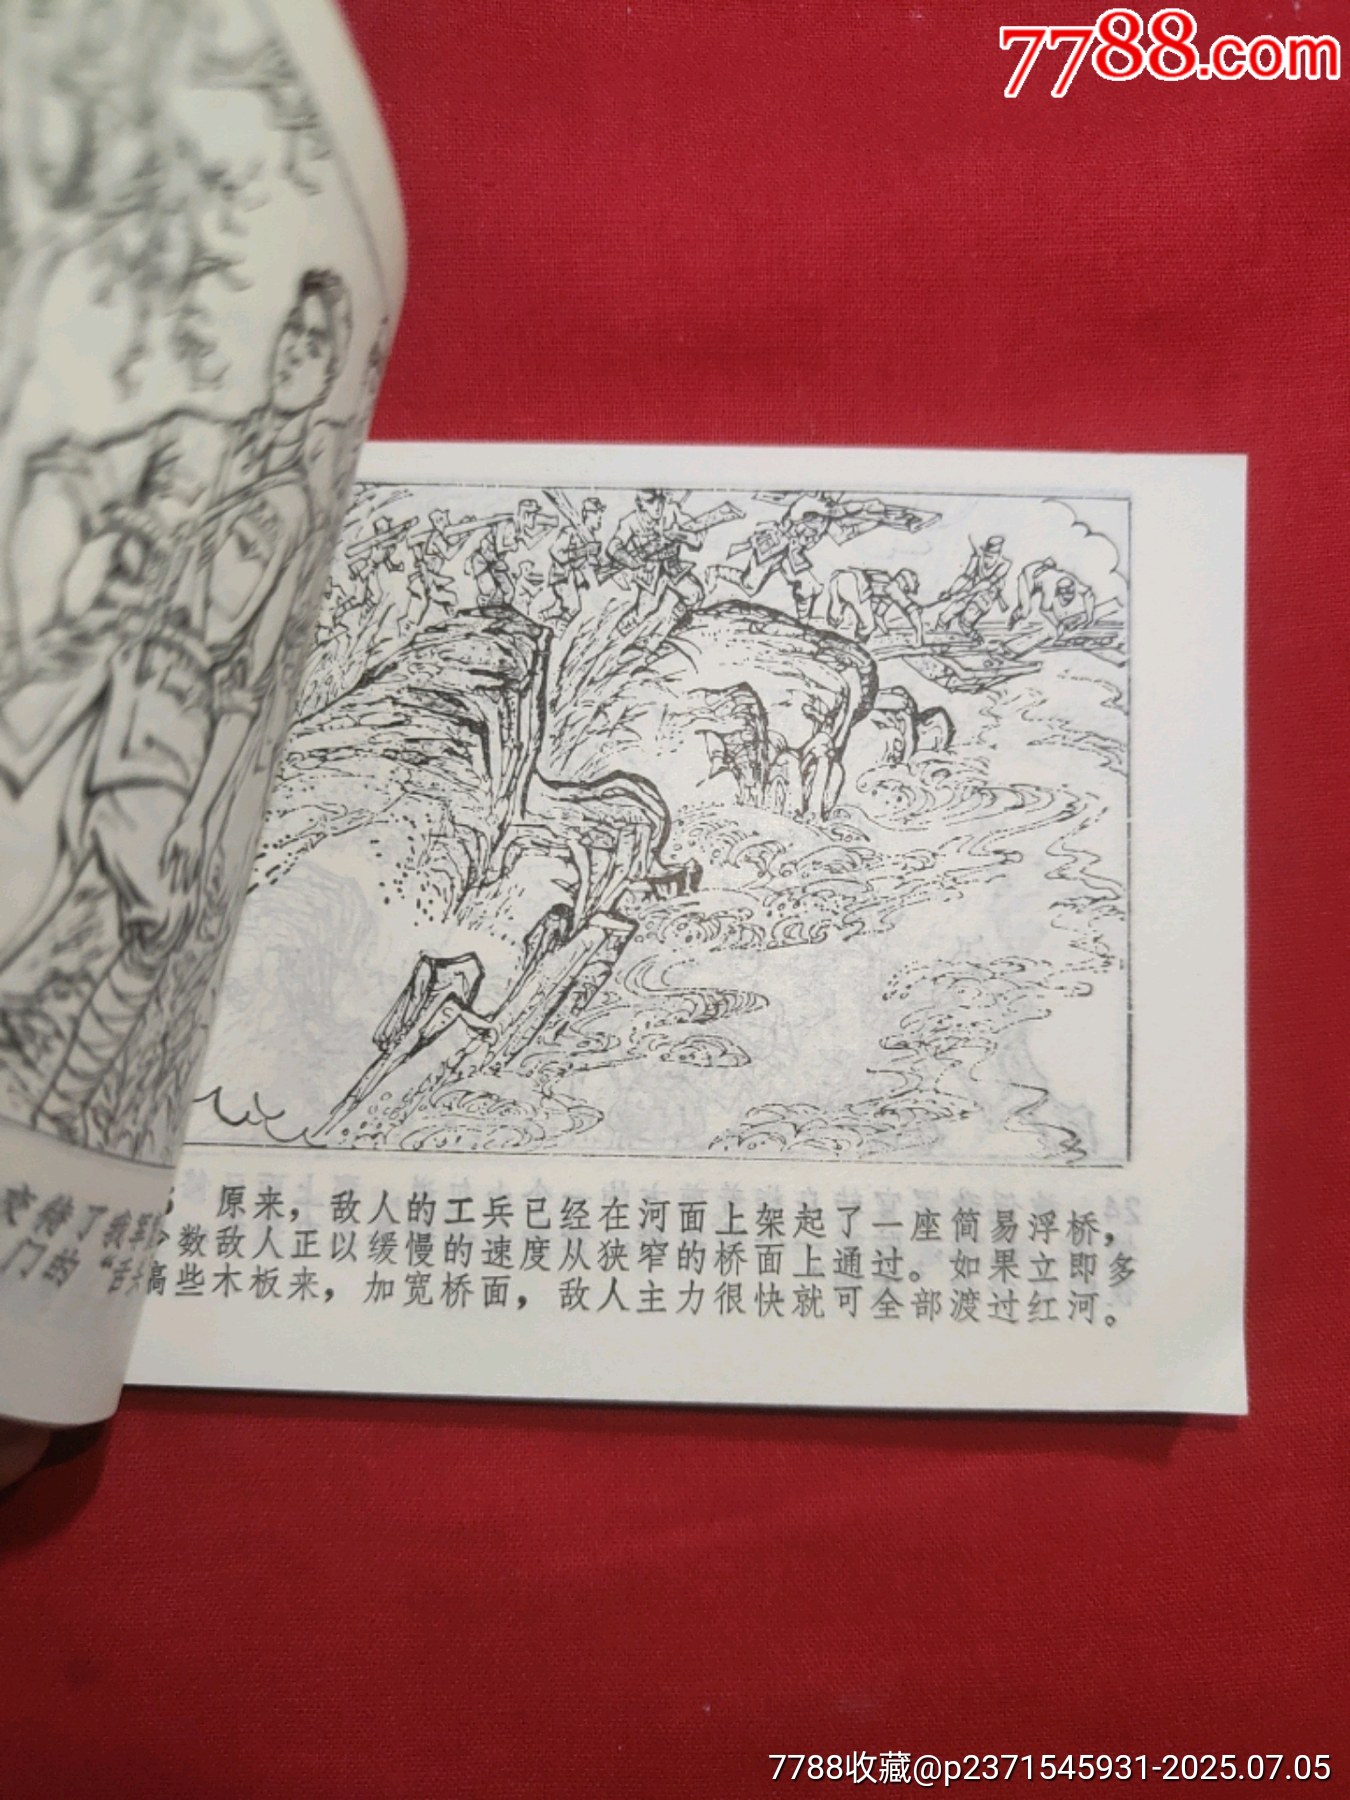 7788.com
原来，敌人的工兵已经在河面上架起了一座简易浮桥，
数敌人正以缓慢的速度从狭窄的桥面上通过。如果立即多
搞些木板来，加宽桥面，敌人主力很快就可全部渡过红河。
交待了我军
门的“舌
7788收藏@p2371545931-2025.07.05